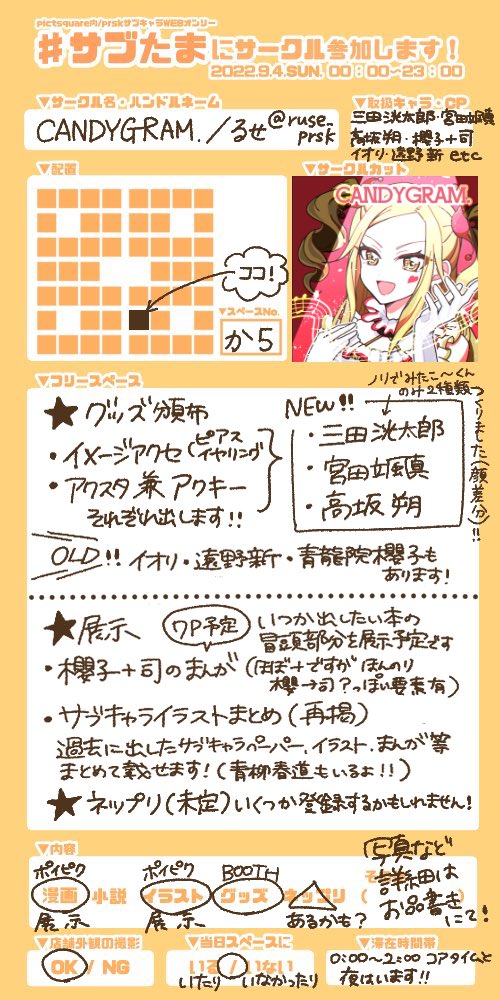 pictsquare内/prskサブキャラWEBオンリー
#サブたまにサークル参加します!
2022.9.4.SUN. 00:00~23:00
▼サークル名・ハンドルネーム
CANDYGRAM./るせ@ruse_prsk
▼取扱キャラ・CP
三田洸太郎・宮田颯真
高坂朔・櫻子+司
イオリ・遠野新 etc
▼配置
ココ!
▼スペースNo.
か5
▼サークルカット
CANDYGRAM.
▼フリースペース
★グッズ頒布
・イメージアクセ(ピアス イヤリング)
・アクスタ兼アクキー
それぞれ出します!!
NEW!!
・三田洸太郎
・宮田颯真
・高坂朔
ノリでみたこ〜くん
のみ2種類つくりました(顔差分)!!
OLD!! イオリ・遠野新・青龍院櫻子も
あります!
★展示
7P予定
いつか出したい本の
冒頭部分を展示予定です
・櫻子+司のまんが(ほぼ+ですがほんのり
櫻→司?っぽい要素有)
・サブキャライラストまとめ(再掲)
過去に出したサブキャラペーパー、イラスト、まんが等
まとめて載せます!(青柳春道もいるよ!!)
★ネップリ(未定)いくつか登録するかもしれません!
▼内容
ポイピク ポイピク BOOTH
漫画 小説 イラスト グッズ ネップリ
展示 展示 あるかも?
写真など
詳細は
お品書き
にて!
▼店舗外観の撮影
OK / NG
▼当日スペースに
いる / いない
いたり いなかったり
▼滞在時間帯
0:00〜2:00 コアタイムと
夜はいます!!